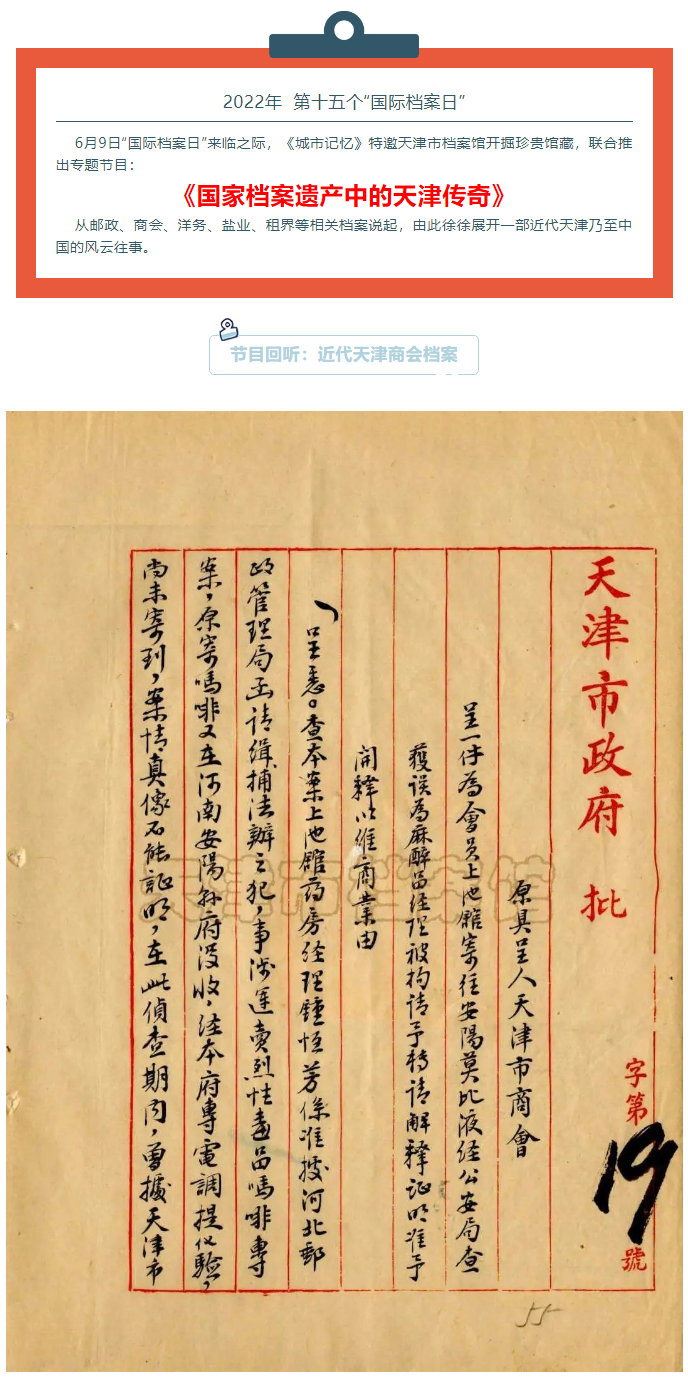 2022年 第十五个“国际档案日”
6月9日“国际档案日”来临之际，《城市记忆》特邀天津市档案馆开掘珍贵馆藏，联合推
出专题节目：
《国家档案遗产中的天津传奇》
从邮政、商会、洋务、盐业、租界等相关档案说起，由此徐徐展开一部近代天津乃至中
国的风云往事。
节目回听：近代天津商会档案
天津市政府 批
字第19號
原具呈人天津市商會
呈一件為會員上池館寄往安陽莫比液经公安局查
獲误為麻醉品经理被拘请予转请解释证明准予
開釋以维商業由
呈悉。查本案上池館药房经理鍾恒芳係准據河北郵
政管理局函请缉捕法辦之犯，事涉運賣烈性毒品嗎啡專
案，原寄嗎啡又在河南安陽縣府没收，经本府專電調提化驗，
尚未寄到，案情真像不能証明，在此偵查期内，曾據天津市
天津市档案馆
55